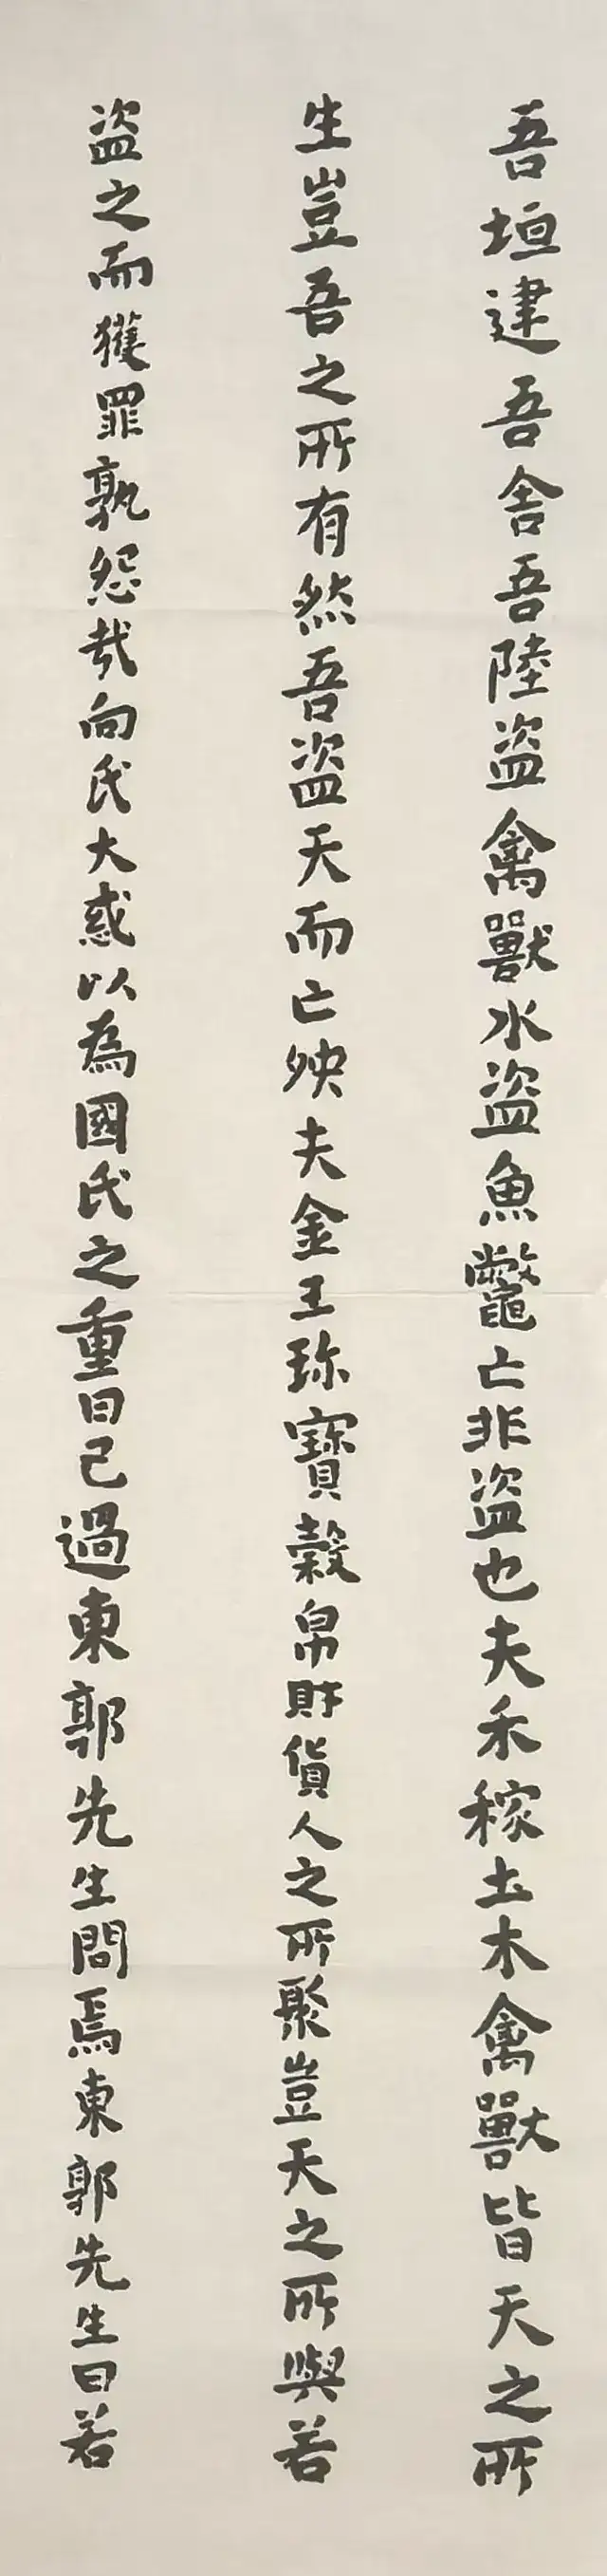 吾垣建吾舍吾陸盜禽獸水盜魚鼈亡非盜也夫禾稼土木禽獸皆天之所
生豈吾之所有然吾盜天而亡殃夫金玉珎寶穀帛財貨人之所聚豈天之所與若
盜之而獲罪孰怨哉向氏大惑以為國氏之重罔己過東郭先生問焉東郭先生曰若